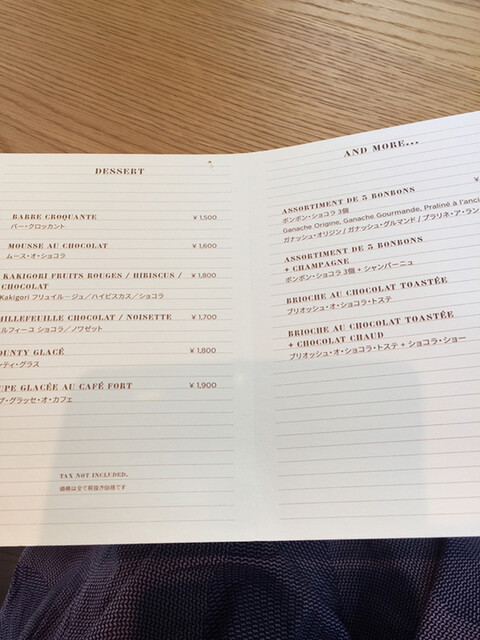 DESSERT
BARRE CROQUANTE ¥ 1,500
バー・クロッカント
MOUSSE AU CHOCOLAT ¥ 1,600
ムース・オ・ショコラ
KAKIGORI FRUITS ROUGES / HIBISCUS / ¥ 1,800
CHOCOLAT
Kakigori フリュイルージュ／ハイビスカス／ショコラ
MILLEFEUILLE CHOCOLAT / NOISETTE ¥ 1,700
ルフィーユ ショコラ／ノワゼット
OUNTY GLACÉ ¥ 1,800
ンティ・グラス
UPE GLACÉE AU CAFÉ FORT ¥ 1,900
プ・グラッセ・オ・カフェ
TAX NOT INCLUDED.
価格は全て税抜き価格です
AND MORE...
ASSORTIMENT DE 3 BONBONS ¥
ボンボン・ショコラ 3個
Ganache Origine, Ganache Gourmande, Praliné à l'anci
ガナッシュ・オリジン / ガナッシュ・グルマンド / プラリネ・ア・ラン
ASSORTIMENT DE 3 BONBONS
+ CHAMPAGNE
ボンボン・ショコラ 3個 + シャンパーニュ
BRIOCHE AU CHOCOLAT TOASTÉE
ブリオッシュ・オ・ショコラ・トステ
BRIOCHE AU CHOCOLAT TOASTÉE
+ CHOCOLAT CHAUD
ブリオッシュ・オ・ショコラ・トステ + ショコラ・ショー